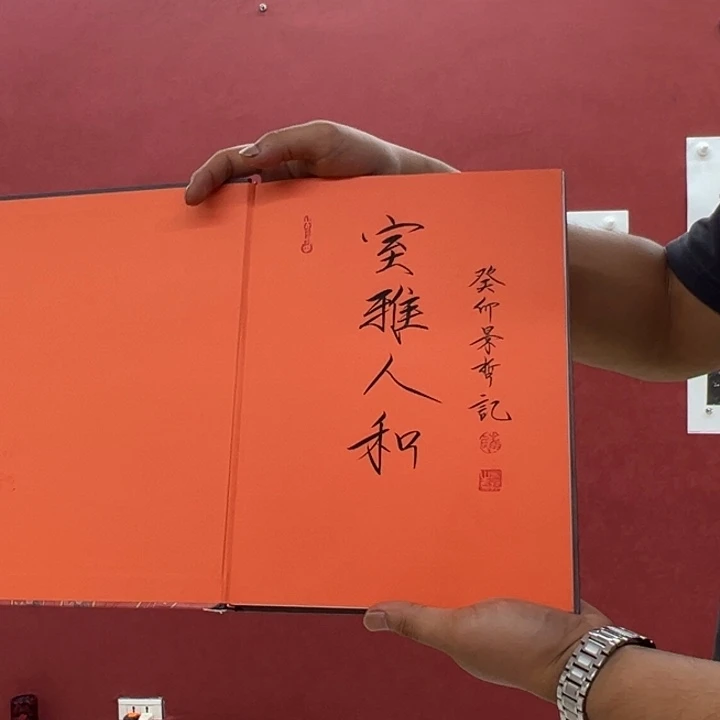 室雅人和
癸卯景哲記